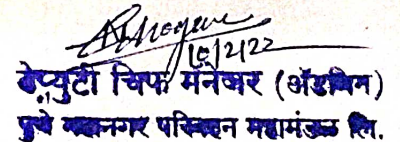 10/2/22
डेप्युटी चिफ मॅनेजर (अ‍ॅडमिन)
पुणे महानगर परिवहन महामंडळ लि.